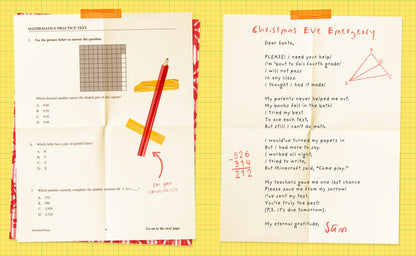 MATHEMATICS PRACTICE TEST
Use the picture below to answer the question.
Which decimal number names the shaded part of this square?
Which letter has a pair of parallel lines?
Go on to the next page.
For your
convenience
Christmas Eve Emergency
Dear Santa,
PLEASE! I need your help!
I'm 'bout to fail fourth grade!
I will not pass
In any class.
I thought I had it made!
My parents never helped me out.
My books fell in the bath!
I tried my best
To ace each test,
But still I can't do math.
I would've turned my papers in
But I had more to say.
I worked all night,
I tried to write,
But Minecraft said, "Come play."
My teachers gave me one last chance
Please save me from my sorrow!
I've sent my states.
You're truly the best!
(P.S. it's due tomorrow).
My eternal gratitude,
Sam
A
B
C
-526
314
212